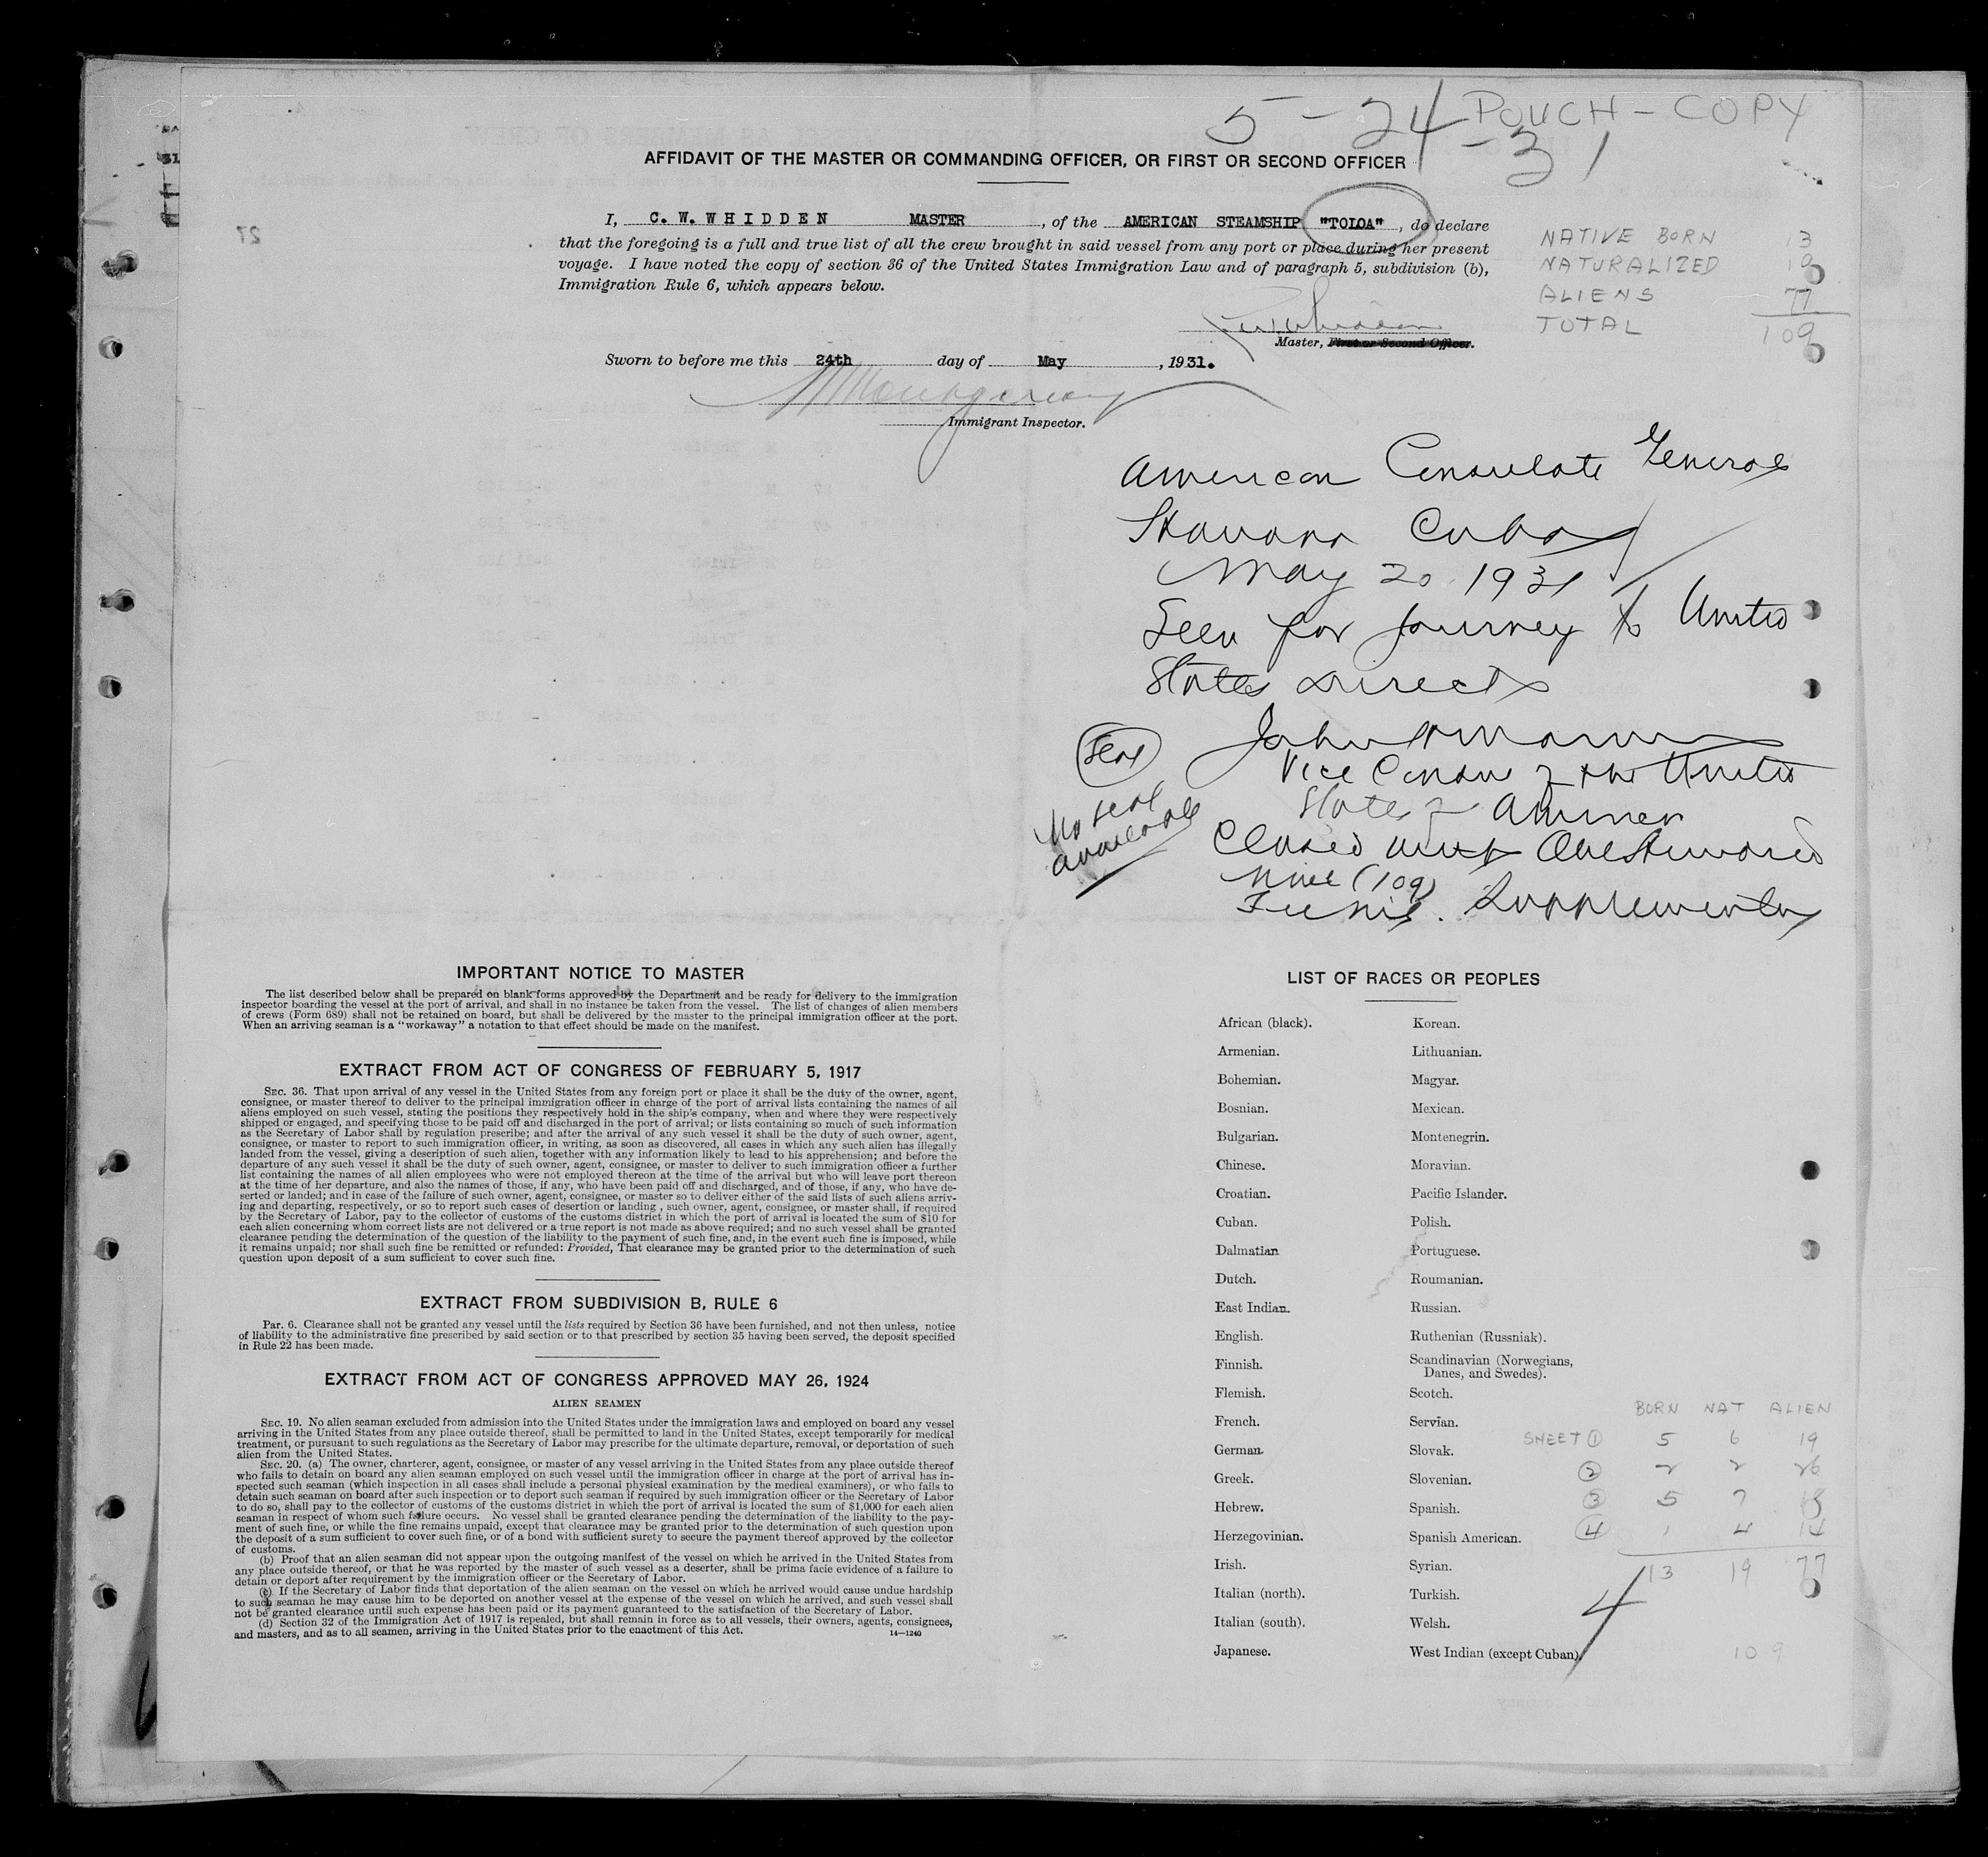 5-24-31
POUCH-COPY
AFFIDAVIT OF THE MASTER OR COMMANDING OFFICER, OR FIRST OR SECOND OFFICER
I, C. W. WHIDDEN MASTER, of the AMERICAN STEAMSHIP "TOLOA", do declare
that the foregoing is a full and true list of all the crew brought in said vessel from any port or place during her present
voyage. I have noted the copy of section 36 of the United States Immigration Law and of paragraph 5, subdivision (b),
Immigration Rule 6, which appears below.
Master, First or Second Officer.
Sworn to before me this 24th day of May, 1931.
Immigrant Inspector.
NATIVE BORN 13
NATURALIZED 19
ALIENS 77
TOTAL 109
American Consulate General
Havana Cuba
May 20 1931
Seen for journey to United
States Direct
Seal
No seal
available
Vice Consul of the United
States of America
Closed with One Hundred
nine (109)
Fee No . Supplementary
IMPORTANT NOTICE TO MASTER
The list described below shall be prepared on blank forms approved by the Department and be ready for delivery to the immigration
inspector boarding the vessel at the port of arrival, and shall in no instance be taken from the vessel. The list of changes of alien members
of crews (Form 689) shall not be retained on board, but shall be delivered by the master to the principal immigration officer at the port.
When an arriving seaman is a "workaway" a notation to that effect should be made on the manifest.
EXTRACT FROM ACT OF CONGRESS OF FEBRUARY 5, 1917
SEC. 36. That upon arrival of any vessel in the United States from any foreign port or place it shall be the duty of the owner, agent,
consignee, or master thereof to deliver to the principal immigration officer in charge of the port of arrival lists containing the names of all
aliens employed on such vessel, stating the positions they respectively hold in the ship's company, when and where they were respectively
shipped or engaged, and specifying those to be paid off and discharged in the port of arrival; or lists containing so much of such information
as the Secretary of Labor shall by regulation prescribe; and after the arrival of any such vessel it shall be the duty of such owner, agent,
consignee, or master to report to such immigration officer, in writing, as soon as discovered, all cases in which any such alien has illegally
landed from the vessel, giving a description of such alien, together with any information likely to lead to his apprehension; and before the
departure of any such vessel it shall be the duty of such owner, agent, consignee, or master to deliver to such immigration officer a further
list containing the names of all alien employees who were not employed thereon at the time of the arrival but who will leave port thereon
at the time of her departure, and also the names of those, if any, who have been paid off and discharged, and of those, if any, who have de-
serted or landed; and in case of the failure of such owner, agent, consignee, or master so to deliver either of the said lists of such aliens arriv-
ing and departing, respectively, or so to report such cases of desertion or landing , such owner, agent, consignee, or master shall, if required
by the Secretary of Labor, pay to the collector of customs of the customs district in which the port of arrival is located the sum of $10 for
each alien concerning whom correct lists are not delivered or a true report is not made as above required; and no such vessel shall be granted
clearance pending the determination of the question of the liability to the payment of such fine, and, in the event such fine is imposed, while
it remains unpaid; nor shall such fine be remitted or refunded: Provided, That clearance may be granted prior to the determination of such
question upon deposit of a sum sufficient to cover such fine.
EXTRACT FROM SUBDIVISION B, RULE 6
Par. 6. Clearance shall not be granted any vessel until the lists required by Section 36 have been furnished, and not then unless, notice
of liability to the administrative fine prescribed by said section or to that prescribed by section 35 having been served, the deposit specified
in Rule 22 has been made.
EXTRACT FROM ACT OF CONGRESS APPROVED MAY 26, 1924
ALIEN SEAMEN
SEC. 19. No alien seaman excluded from admission into the United States under the immigration laws and employed on board any vessel
arriving in the United States from any place outside thereof, shall be permitted to land in the United States, except temporarily for medical
treatment, or pursuant to such regulations as the Secretary of Labor may prescribe for the ultimate departure, removal, or deportation of such
alien from the United States.
SEC. 20. (a) The owner, charterer, agent, consignee, or master of any vessel arriving in the United States from any place outside thereof
who fails to detain on board any alien seaman employed on such vessel until the immigration officer in charge at the port of arrival has in-
spected such seaman (which inspection in all cases shall include a personal physical examination by the medical examiners), or who fails to
detain such seaman on board after such inspection or to deport such seaman if required by such immigration officer or the Secretary of Labor
to do so, shall pay to the collector of customs of the customs district in which the port of arrival is located the sum of $1,000 for each alien
seaman in respect of whom such failure occurs. No vessel shall be granted clearance pending the determination of the liability to the pay-
ment of such fine, or while the fine remains unpaid, except that clearance may be granted prior to the determination of such question upon
the deposit of a sum sufficient to cover such fine, or of a bond with sufficient surety to secure the payment thereof approved by the collector
of customs.
(b) Proof that an alien seaman did not appear upon the outgoing manifest of the vessel on which he arrived in the United States from
any place outside thereof, or that he was reported by the master of such vessel as a deserter, shall be prima facie evidence of a failure to
detain or deport after requirement by the immigration officer or the Secretary of Labor.
(c) If the Secretary of Labor finds that deportation of the alien seaman on the vessel on which he arrived would cause undue hardship
to such seaman he may cause him to be deported on another vessel at the expense of the vessel on which he arrived, and such vessel shall
not be granted clearance until such expense has been paid or its payment guaranteed to the satisfaction of the Secretary of Labor.
(d) Section 32 of the Immigration Act of 1917 is repealed, but shall remain in force as to all vessels, their owners, agents, consignees,
and masters, and as to all seamen, arriving in the United States prior to the enactment of this Act.
14—1240
LIST OF RACES OR PEOPLES
African (black). Korean.
Armenian. Lithuanian.
Bohemian. Magyar.
Bosnian. Mexican.
Bulgarian. Montenegrin.
Chinese. Moravian.
Croatian. Pacific Islander.
Cuban. Polish.
Dalmatian Portuguese.
Dutch. Roumanian.
East Indian. Russian.
English. Ruthenian (Russniak).
Finnish. Scandinavian (Norwegians,
Danes, and Swedes).
Flemish. Scotch.
French. Servian.
German. Slovak.
Greek. Slovenian.
Hebrew. Spanish.
Herzegovinian. Spanish American.
Irish. Syrian.
Italian (north). Turkish.
Italian (south). Welsh.
Japanese. West Indian (except Cuban).
BORN NAT ALIEN
SHEET 1 5 6 19
2 2 2 26
3 5 7 18
4 1 4 14
13 19 77
4
109